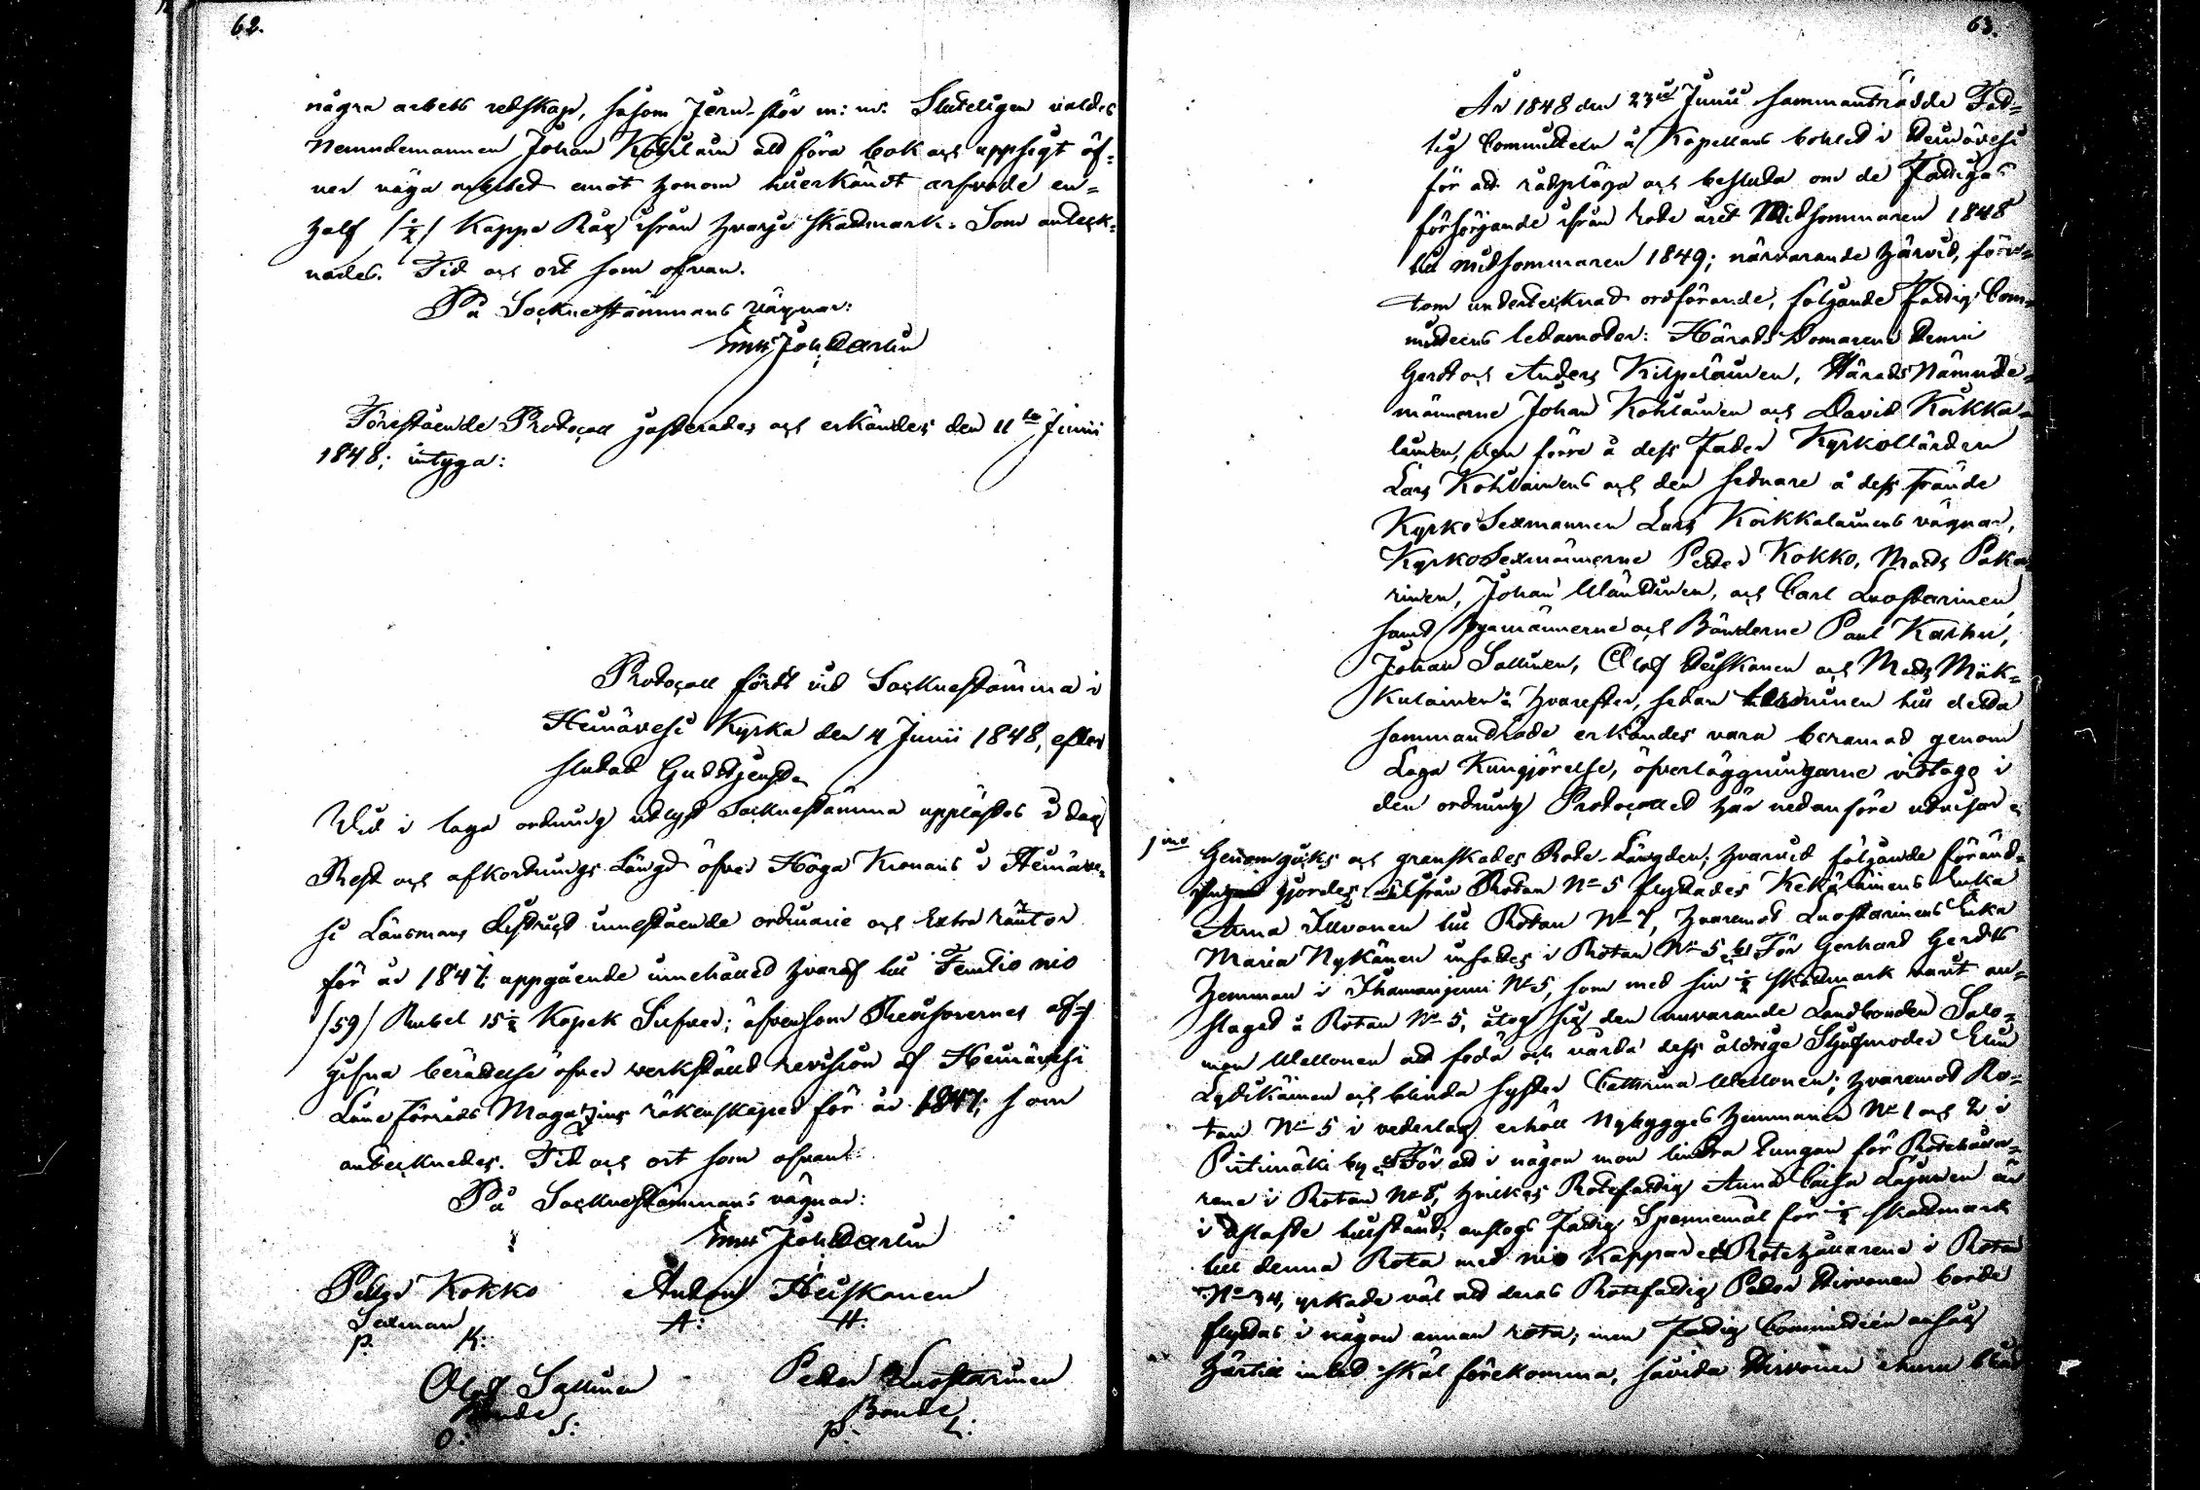 62.
några arbets redskap, såsom Jern-stör m: m. Sluteligen valdes
Nemndemannen Johan Kohlain att föra bok och uppsigt öf-
ver väga arbetet emot honom tillerkändt arfvode en-
half /½/ Kappe Råg ifrån hvarje skattmark. Som anteck-
nades. Tid och ort som ofvan.
På Sockne Stämmans vägnar:
Joh: Carlin
Förestående Protocoll justerades och erkändes den 11te Junii
1848; intyga:
Protocoll fördt vid Sockne stämma i
Heinävesi Kyrka den 4 Junii 1848, efter
slutad Gudstjenst.
Wid i laga ordning utlyst Sockne stämma upplästes i dag
Rest och afkortnings Längd öfver Höga Kronans i Heinäve-
si Länsmans District innestående ordinarie och Extra räntor
för år 1847, uppgående innehållet hvaraf till Femtio nio
/59/ Rubel 15½ Kopek Silfver; äfvensom Revisorernes af-
gifna berättelse öfver verkställd revision af Heinävesi
Låne Förråds Magazins räkenskaper för år 1847; som
antecknades. Tid och ort som ofvan.
På Sockne Stämmans vägnar:
Joh: Carlin
Petter Kokko Anders Heiskanen
Sexman A: H:
P. K:
Olof Sallinen Petter Luostarinen
Bonde Bonde
O: S: P: L:
63.
År 1848 den 23de Junii sammanträdde Fat-
tig Committéen å Kapellans bohlet i Heinävesi
för att rådpläga och besluta om de Fattigas
försörjande ifrån rote året Midsommaren 1848
till midsommaren 1849; närvarande härvid, föru-
tom undertecknad ordförande, följande Fattig Com-
mitteens ledamöter: Härads Domarena Henric
Gerdt och Anders Kilpeläinen, Härads Nämnde-
männerne Johan Kohlainen och David Kokka-
lainen, den förre å dess Fader Kyrkovärden
Lars Kohlainens och den sednare å dess Frände
Kyrko Sexmannen Lars Koikkalainens vägnar,
Kyrko Sexmännerne Petter Kokko, Mats Paka-
rinen, Johan Wänttinen, och Carl Luostarinen,
samt Byamännerne och Bönderne Paul Karhu,
Johan Sallinen, Olof Heiskanen och Mats Mäk-
kulainen: hvarefter, sedan terminen till detta
sammanträde erkändes vara beramad genom
Laga Kungjörelse, öfverläggningarne vidtogs i
den ordning Protocollet här nedanföre utvisar:
1mo Genomgicks och granskades Rote-Längden; hvarvid följande föränd-
gjordes: ifrån Rotan No 5 flyttades Kekäläinens Enka
Anna Ilvonen till Rotan No 7, hvaremot Luostarinens Enka
Maria Nykänen insattes i Rotan No 5. För Gerhard Gerdts
hemman i Ihamaniemi No 5, som med sin ½ skattmark varit an-
slaget å Rotan No 5, åtog sig den nuvarande Landbonden Salo-
mon Wellonen att föda och vårda dess åldrige Stjufmoder Elin
Lytikäinen och blinda syster Catharina Wellonen; hvaremot Ro-
tan No 5 i vederlag erhöll Nybygges hemmanen No 1 och 2 i
Pirtimäki by. För att i någon mon lindra tungan för Rotehålla-
rene i Rotan No 8, hvilkes Rotefattig Anna Caisa Lajunen är
i utfattigt tillstånd, anslogs Fattig Spannemål för ½ skattmark
till denna Rota med nio Kappar. Rotehållarene i Rota
No 34, yrkade väl att deras Rotefattig Petter Hirvonen borde
flyttas i någon annan rota; men Fattig Committéen ansåg
härtill intet skäl förekomma, såvida Hirvonen ehuru blind